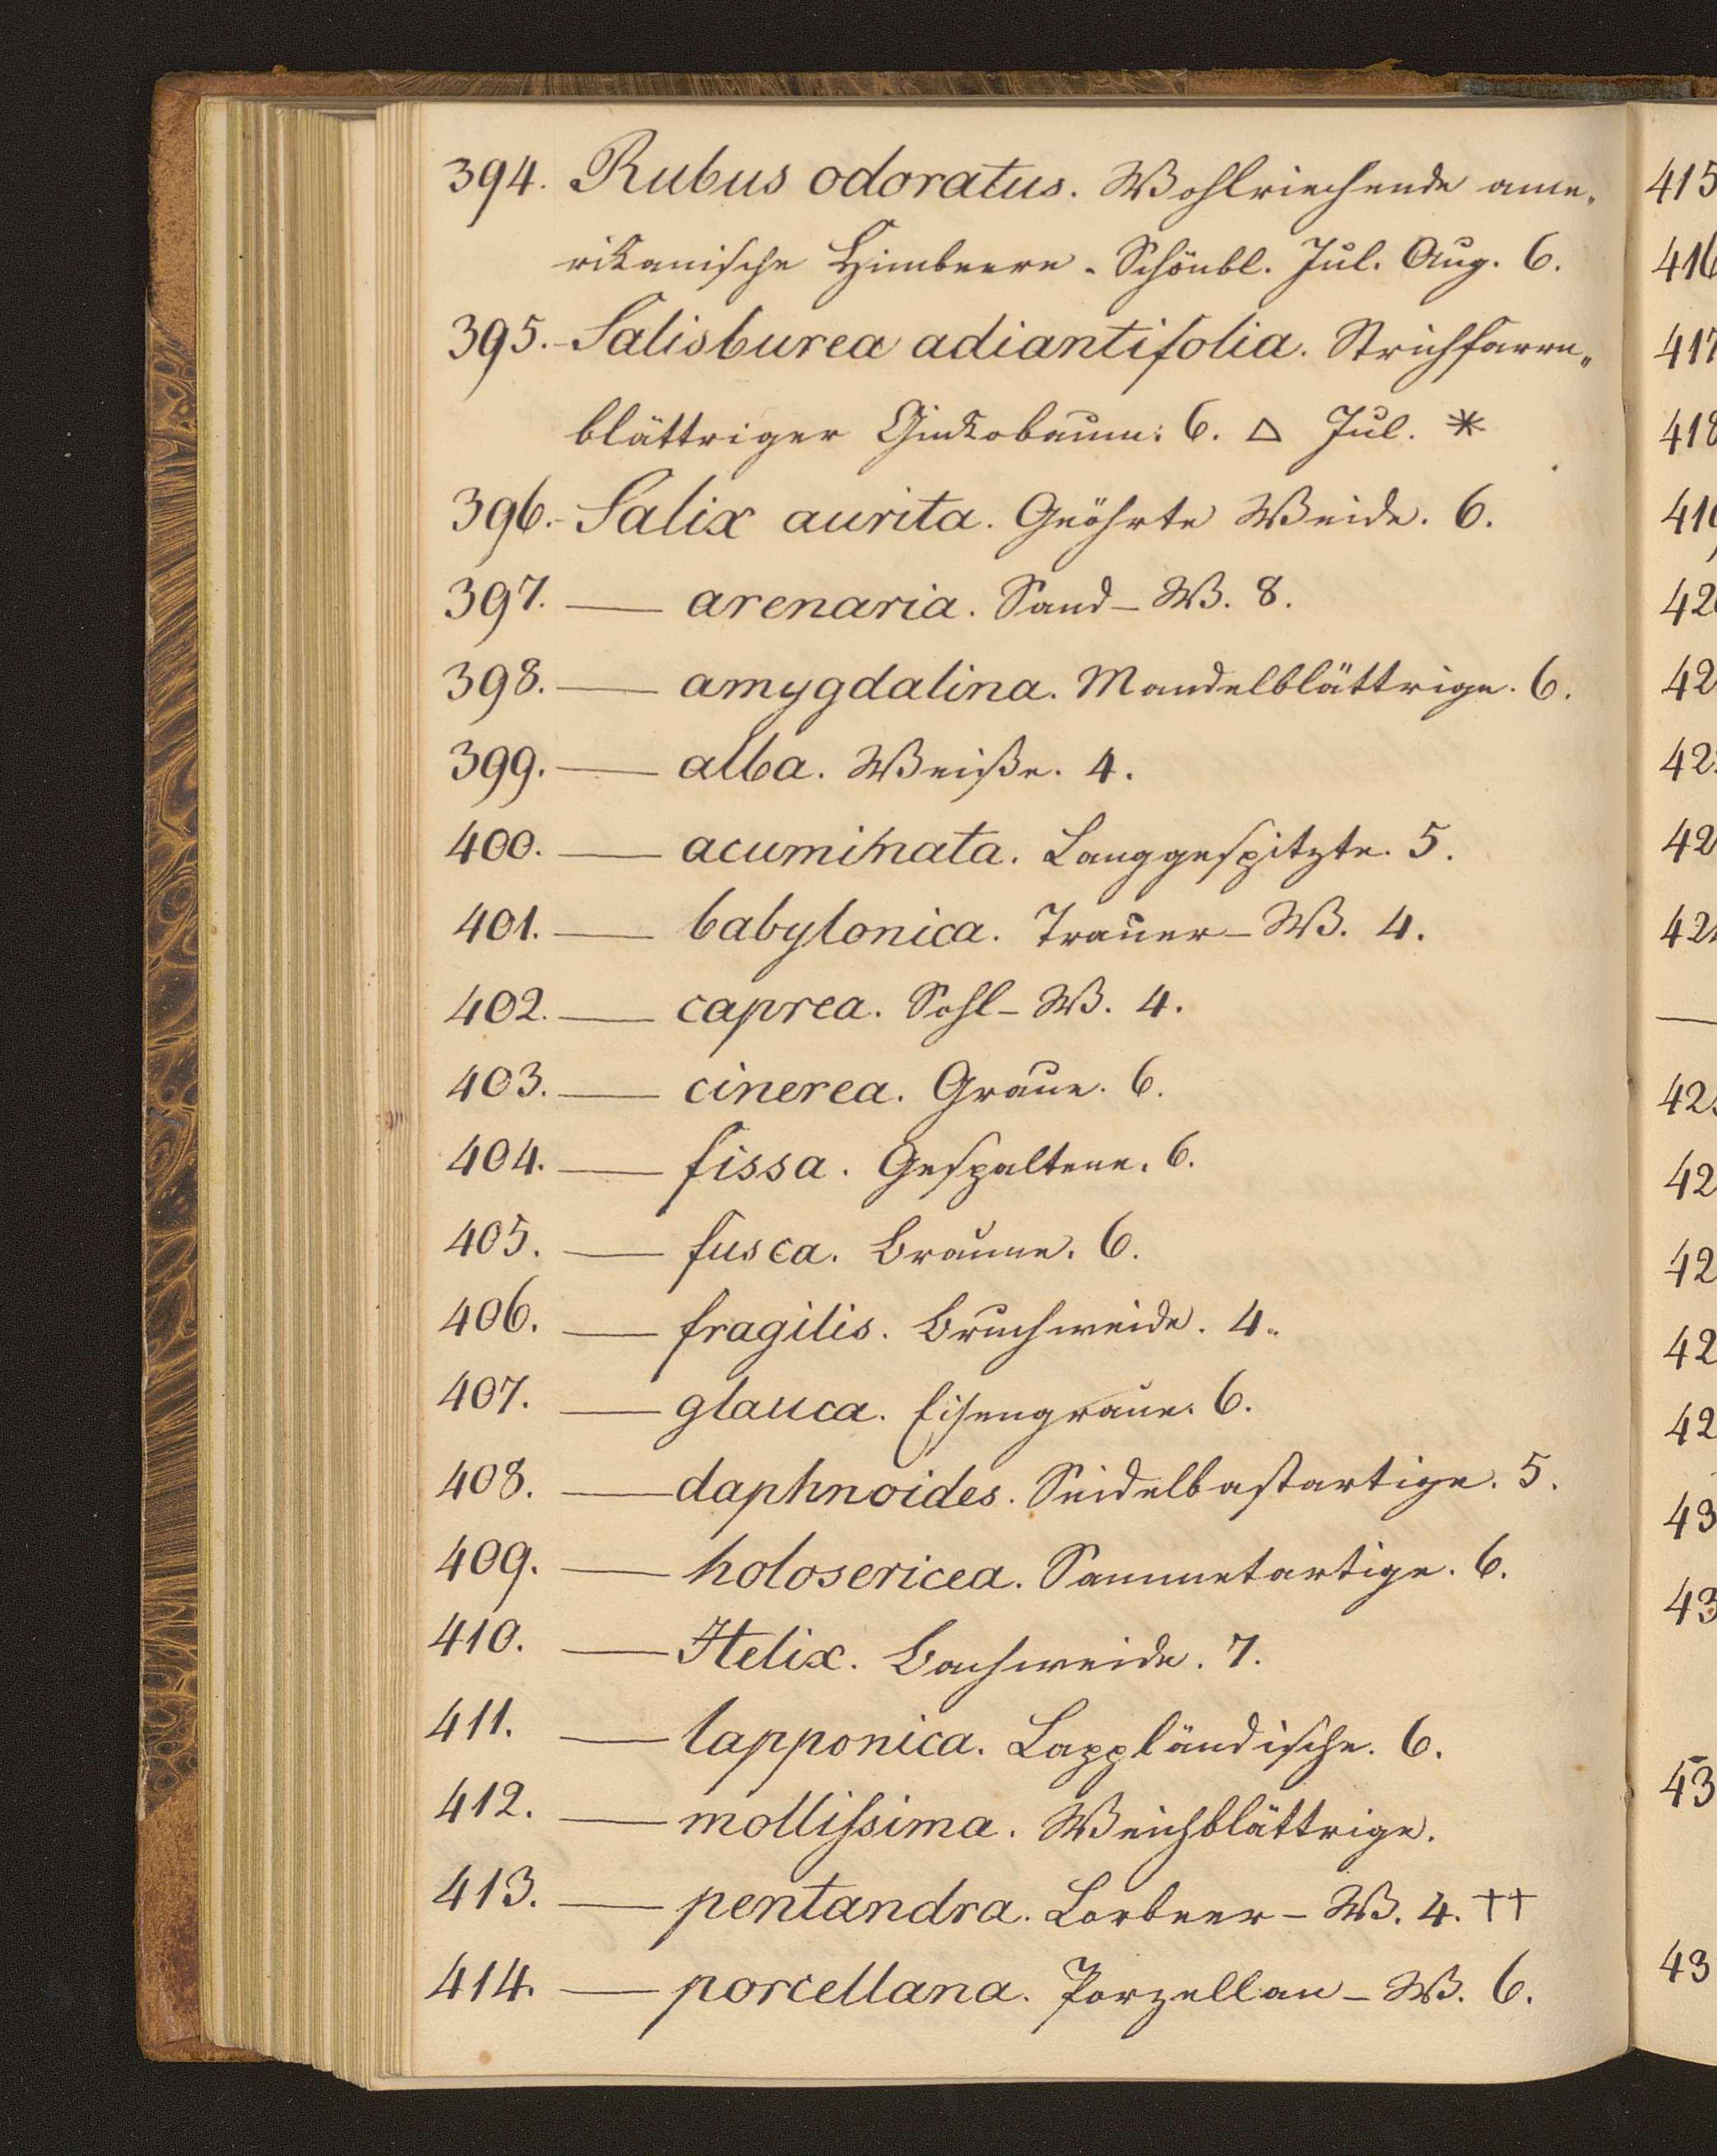 394. Rubus odoratus. Wohlriechende ame-
rikanische Himbeere. Schönbl. Jul. Aug. 6.
395. Salisburea adiantifolia. Strichfarrn-
blättriger Ginkobaum: 6. △ Jul. *
396. Salix aurita. Geöhrte Weide. 6.
397. — arenaria. Sand-W. 8.
398. — amygdalina. Mandelblättrige. 6.
399. — alba. Weiße. 4.
400. — acuminata. Langgespitzte. 5.
401. — babylonica. Trauer-W. 4.
402. — caprea. Sohl-W. 4.
403. — cinerea. Graue. 6.
404. — fissa. Gespaltene. 6.
405. — fusca. Braune. 6.
406. — fragilis. Bruchweide. 4.
407. — glauca. Eisengraue. 6.
408. — daphnoides. Seidelbastartige. 5.
409. — holosericea. Sammetartige. 6.
410. — Helix. Bachweide. 7.
411. — lapponica. Lappländische. 6.
412. — mollissima. Weichblättrige.
413. — pentandra. Lorbeer-W. 4. ††
414. — porcellana. Porzellan-W. 6.
415
416
417
418